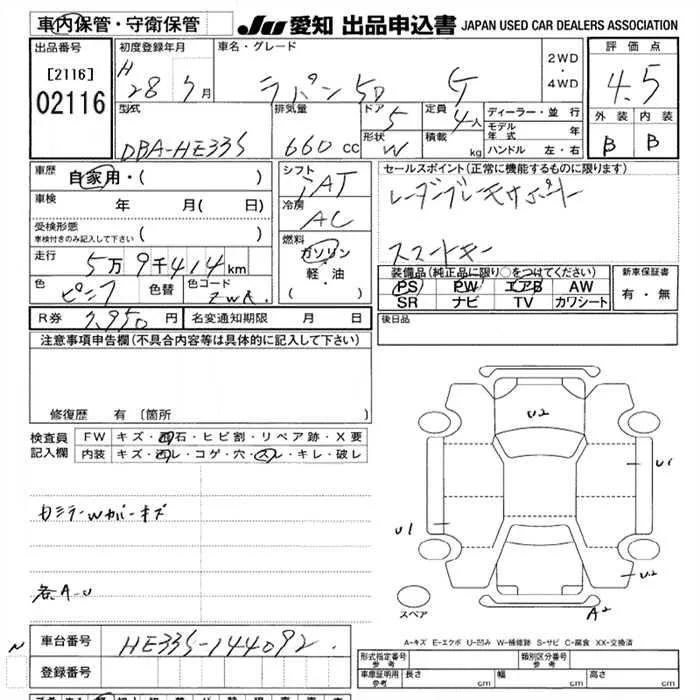 車内保管・守衛保管
JU 愛知 出品申込書 JAPAN USED CAR DEALERS ASSOCIATION
出品番号
[2116]
02116
初度登録年月
H 28 年 5 月
車名・グレード
ラパン 5D G
2WD
・
4WD
評価点
4.5
外装 内装
B B
型式
DBA-HE33S
排気量
660 cc
ドア
5
形状
W
定員
4人
積載
kg
ディーラー・並行
モデル年式 年
ハンドル 左・右
車歴
自家用・( )
車検
年 月( 日)
受検形態
車検付きのみ記入して下さい ( )
走行
5万9千414km
色
ピンク
色替
色コード
ZWR
シフト
IAT
冷房
AC
燃料
ガソリン
・
軽・油
( )
セールスポイント(正常に機能するものに限ります)
レーダーブレーキサポート
スマートキー
装備品(純正品に限り○をつけてください)
PS PW エアB AW
SR ナビ TV カワシート
新車保証書
有・無
R券 円
名変通知期限 月 日
後日品
注意事項申告欄(不具合内容等は具体的に記入して下さい)
修復歴 有 〔箇所
検査員
記入欄
FW キズ・凹石・ヒビ割・リペア跡・X要
内装 キズ・凹レ・コゲ・穴・スレ・キレ・破レ
各A-U
U2
U1
U1
U2
A2
スペア
A-キズ E-エクボ U-凹み W-補修跡 S-サビ C-腐食 XX-交換済
N
車台番号 HE33S-144092
登録番号
形式指定番号
参考
類別区分番号
参考
車庫証明用
参考
長さ cm 幅 cm 高さ cm